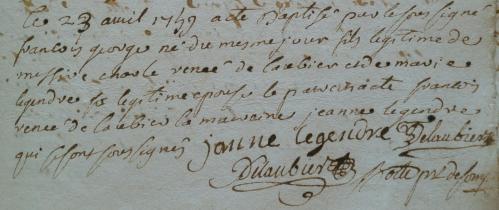 le 23 avril 1749 a cte Baptisé par le sousigné
francois george né du mesme jour fils legitime de
messire charle renée de laubier et de marie
legendre sa legitime epouse le parein a cte francois
renée de laubier la maraine jeanne legendre
qui se sont sousignés janne legendre Delaubier
Delaubier ptre de